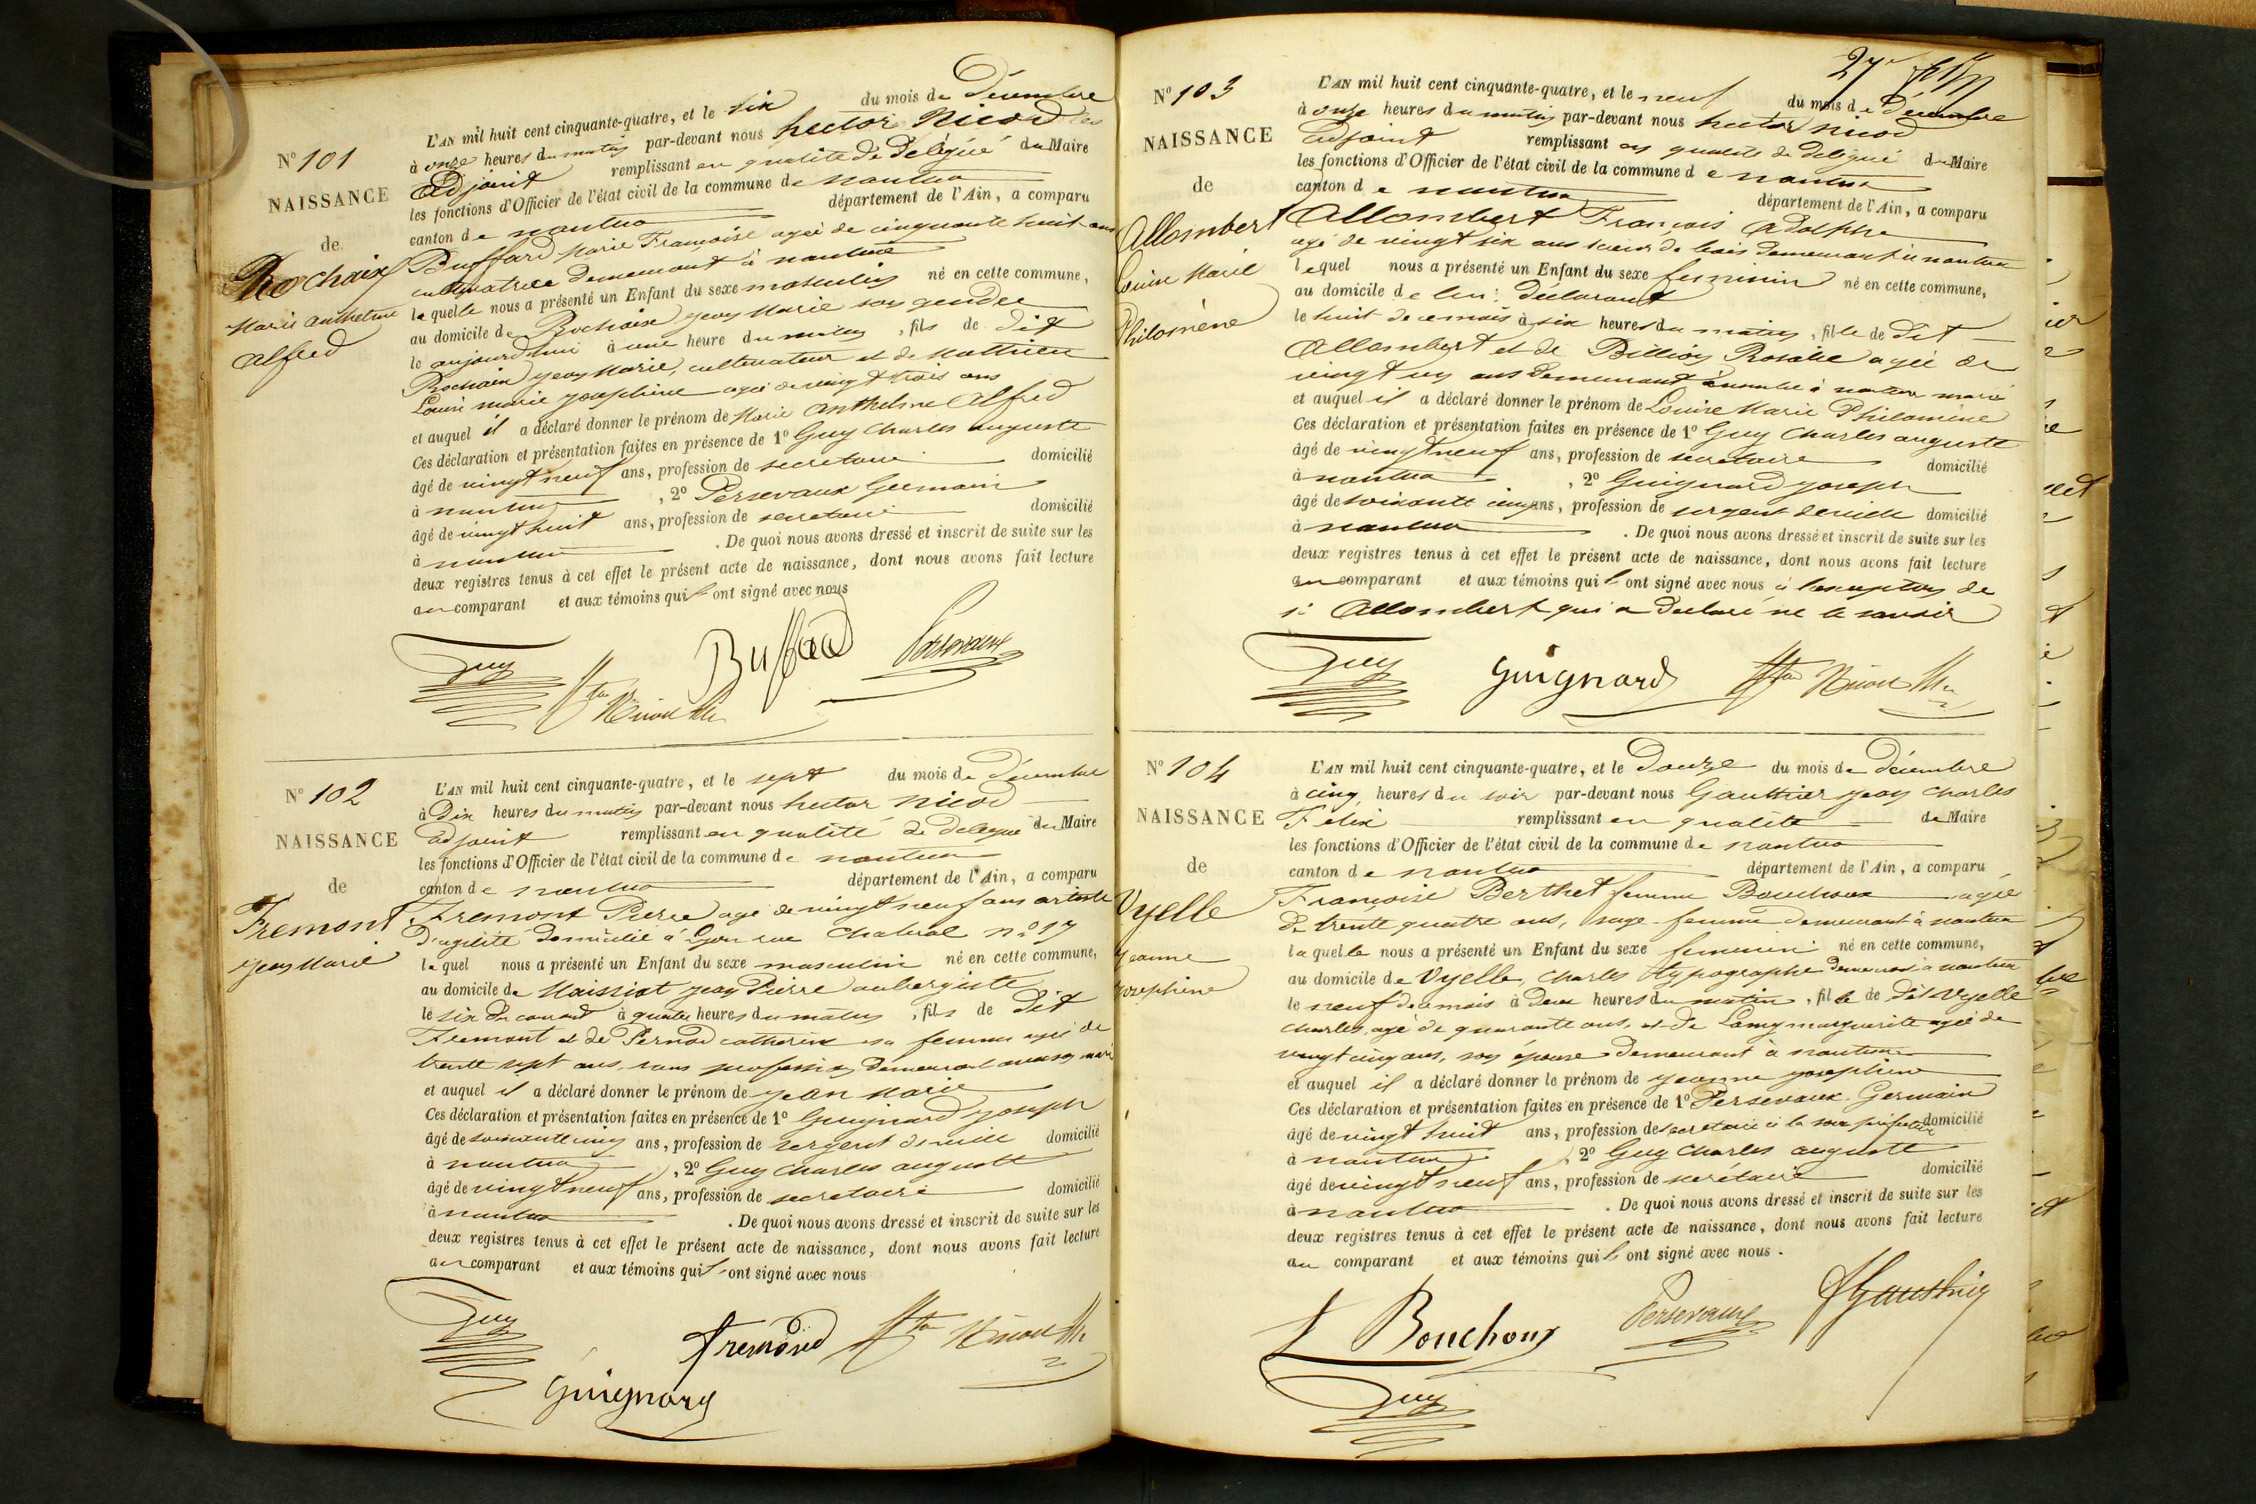 N° 101
NAISSANCE
de
Rochaix
Marie Anthelme
alfred
L'AN mil huit cent cinquante-quatre, et le six du mois de Décembre
à onze heures du matin par-devant nous hector Nicod
Adjoint remplissant en qualité de Délégué du Maire
les fonctions d'Officier de l'état civil de la commune de nantua
canton de nantua département de l'Ain, a comparu
Buffard Marie Françoise agée de cinquante huit ans
cultivatrice demeurant à nantua
laquelle nous a présenté un Enfant du sexe masculin né en cette commune,
au domicile de Rochaix jean Marie son gendre
le aujourd'hui à une heure du matin, fils de dit
Rochaix jean Marie, cultivateur et de Mathieu
Louise marie josephine agée de vingt trois ans
et auquel il a déclaré donner le prénom de Marie Anthelme Alfred
Ces déclaration et présentation faites en présence de 1° Guy Charles auguste
âgé de vingt neuf ans, profession de secretaire domicilié
à nantua, 2° Persevaux Germain
âgé de vingt huit ans, profession de secretaire domicilié
à nantua. De quoi nous avons dressé et inscrit de suite sur les
deux registres tenus à cet effet le présent acte de naissance, dont nous avons fait lecture
au comparant et aux témoins qui ont signé avec nous
Guy Buffard Persevaux
Nicod
N° 102
NAISSANCE
de
Fremont
jean Marie
L'AN mil huit cent cinquante-quatre, et le sept du mois de Décembre
à Dix heures du matin par-devant nous hector Nicod
adjoint remplissant en qualité de delegué du Maire
les fonctions d'Officier de l'état civil de la commune de nantua
canton de nantua département de l'Ain, a comparu
Fremont Pierre agé de vingt neuf ans artiste
D'agilité domicilié à Lyon rue n° 17
lequel nous a présenté un Enfant du sexe masculin né en cette commune,
au domicile de Maissiat jean Pierre aubergiste
le six du courant à quatre heures du matin, fils de dit
Fremont et de Pernod catherine sa femme agée de
trente sept ans, sans profession demeurant
et auquel il a déclaré donner le prénom de jean Marie
Ces déclaration et présentation faites en présence de 1° Guignard joseph
âgé de soixante cinq ans, profession de sergent de ville domicilié
à nantua, 2° Guy Charles auguste
âgé de vingt neuf ans, profession de secretaire domicilié
à nantua. De quoi nous avons dressé et inscrit de suite sur les
deux registres tenus à cet effet le présent acte de naissance, dont nous avons fait lecture
au comparant et aux témoins qui ont signé avec nous
Guy fremond Nicod
Guignard
27e
N° 103
NAISSANCE
de
Allombert
Louise Marie
Philomène
L'AN mil huit cent cinquante-quatre, et le neuf du mois de Décembre
à onze heures du matin par-devant nous hector Nicod
adjoint remplissant en qualité de délégué du Maire
les fonctions d'Officier de l'état civil de la commune de nantua
canton de nantua département de l'Ain, a comparu
Allombert François Adolphe
agé de vingt six ans scieur de bois demeurant à nantua
lequel nous a présenté un Enfant du sexe feminin né en cette commune,
au domicile de lui déclarant
le huit de ce mois à six heures du matin, fille de dit
Allombert et de Billion Rosalie agée de
vingt un ans demeurant ensemble à nantua mariés
et auquel il a déclaré donner le prénom de Louise Marie Philomène
Ces déclaration et présentation faites en présence de 1° Guy Charles auguste
âgé de vingt neuf ans, profession de secretaire domicilié
à nantua, 2° Guignard joseph
âgé de soixante cinq ans, profession de sergent de ville domicilié
à nantua. De quoi nous avons dressé et inscrit de suite sur les
deux registres tenus à cet effet le présent acte de naissance, dont nous avons fait lecture
au comparant et aux témoins qui ont signé avec nous à l'exception de
Allombert qui a declaré ne le savoir
Guy Guignard Nicod
N° 104
NAISSANCE
de
Vyelle
jeanne
josephine
L'AN mil huit cent cinquante-quatre, et le Douze du mois de décembre
à cinq heures du soir par-devant nous Gauthier jean Charles
Félix remplissant en qualité de Maire
les fonctions d'Officier de l'état civil de la commune de nantua
canton de nantua département de l'Ain, a comparu
Françoise Berthet femme Bouchoux agée
de trente quatre ans, sage-femme demeurant à nantua
laquelle nous a présenté un Enfant du sexe femenin né en cette commune,
au domicile de Vyelle, Charles typographe demeurant à nantua
le neuf de ce mois à deux heures du matin, fille de dit Vyelle
Charles, agé de quarante ans, et de Lamy marguerite agée de
vingt cinq ans, son épouse demeurant à nantua
et auquel il a déclaré donner le prénom de jeanne josephine
Ces déclaration et présentation faites en présence de 1° Persevaux Germain
âgé de vingt huit ans, profession de secretaire à la sous préfecture domicilié
à nantua, 2° Guy Charles auguste
âgé de vingt neuf ans, profession de secrétaire domicilié
à nantua. De quoi nous avons dressé et inscrit de suite sur les
deux registres tenus à cet effet le présent acte de naissance, dont nous avons fait lecture
au comparant et aux témoins qui ont signé avec nous.
f Bouchoux Persevaux Gauthier
Guy